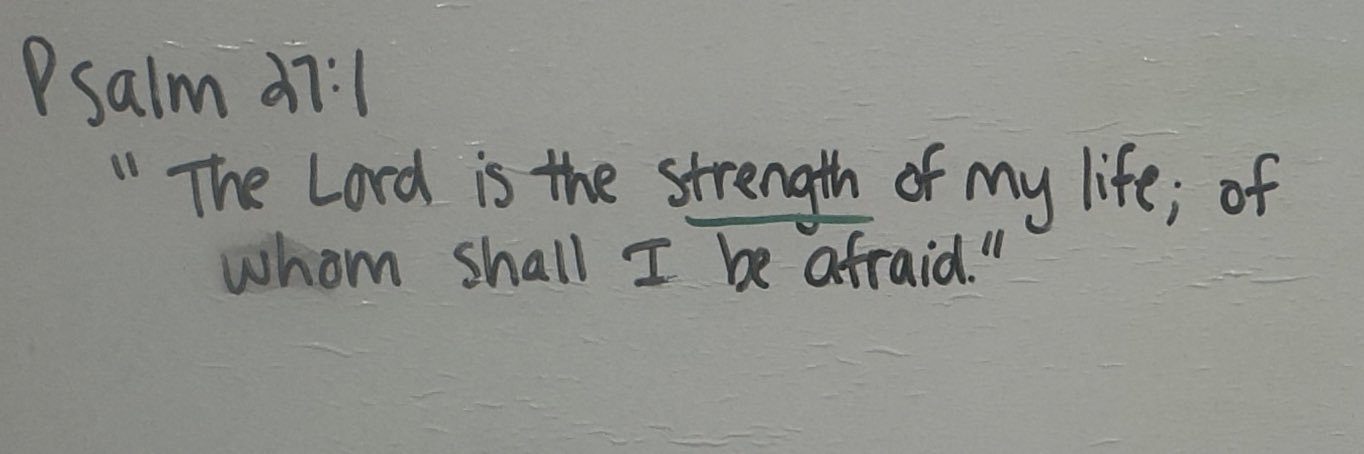 Psalm 27:1
"The Lord is the strength of my life; of
whom shall I be afraid."